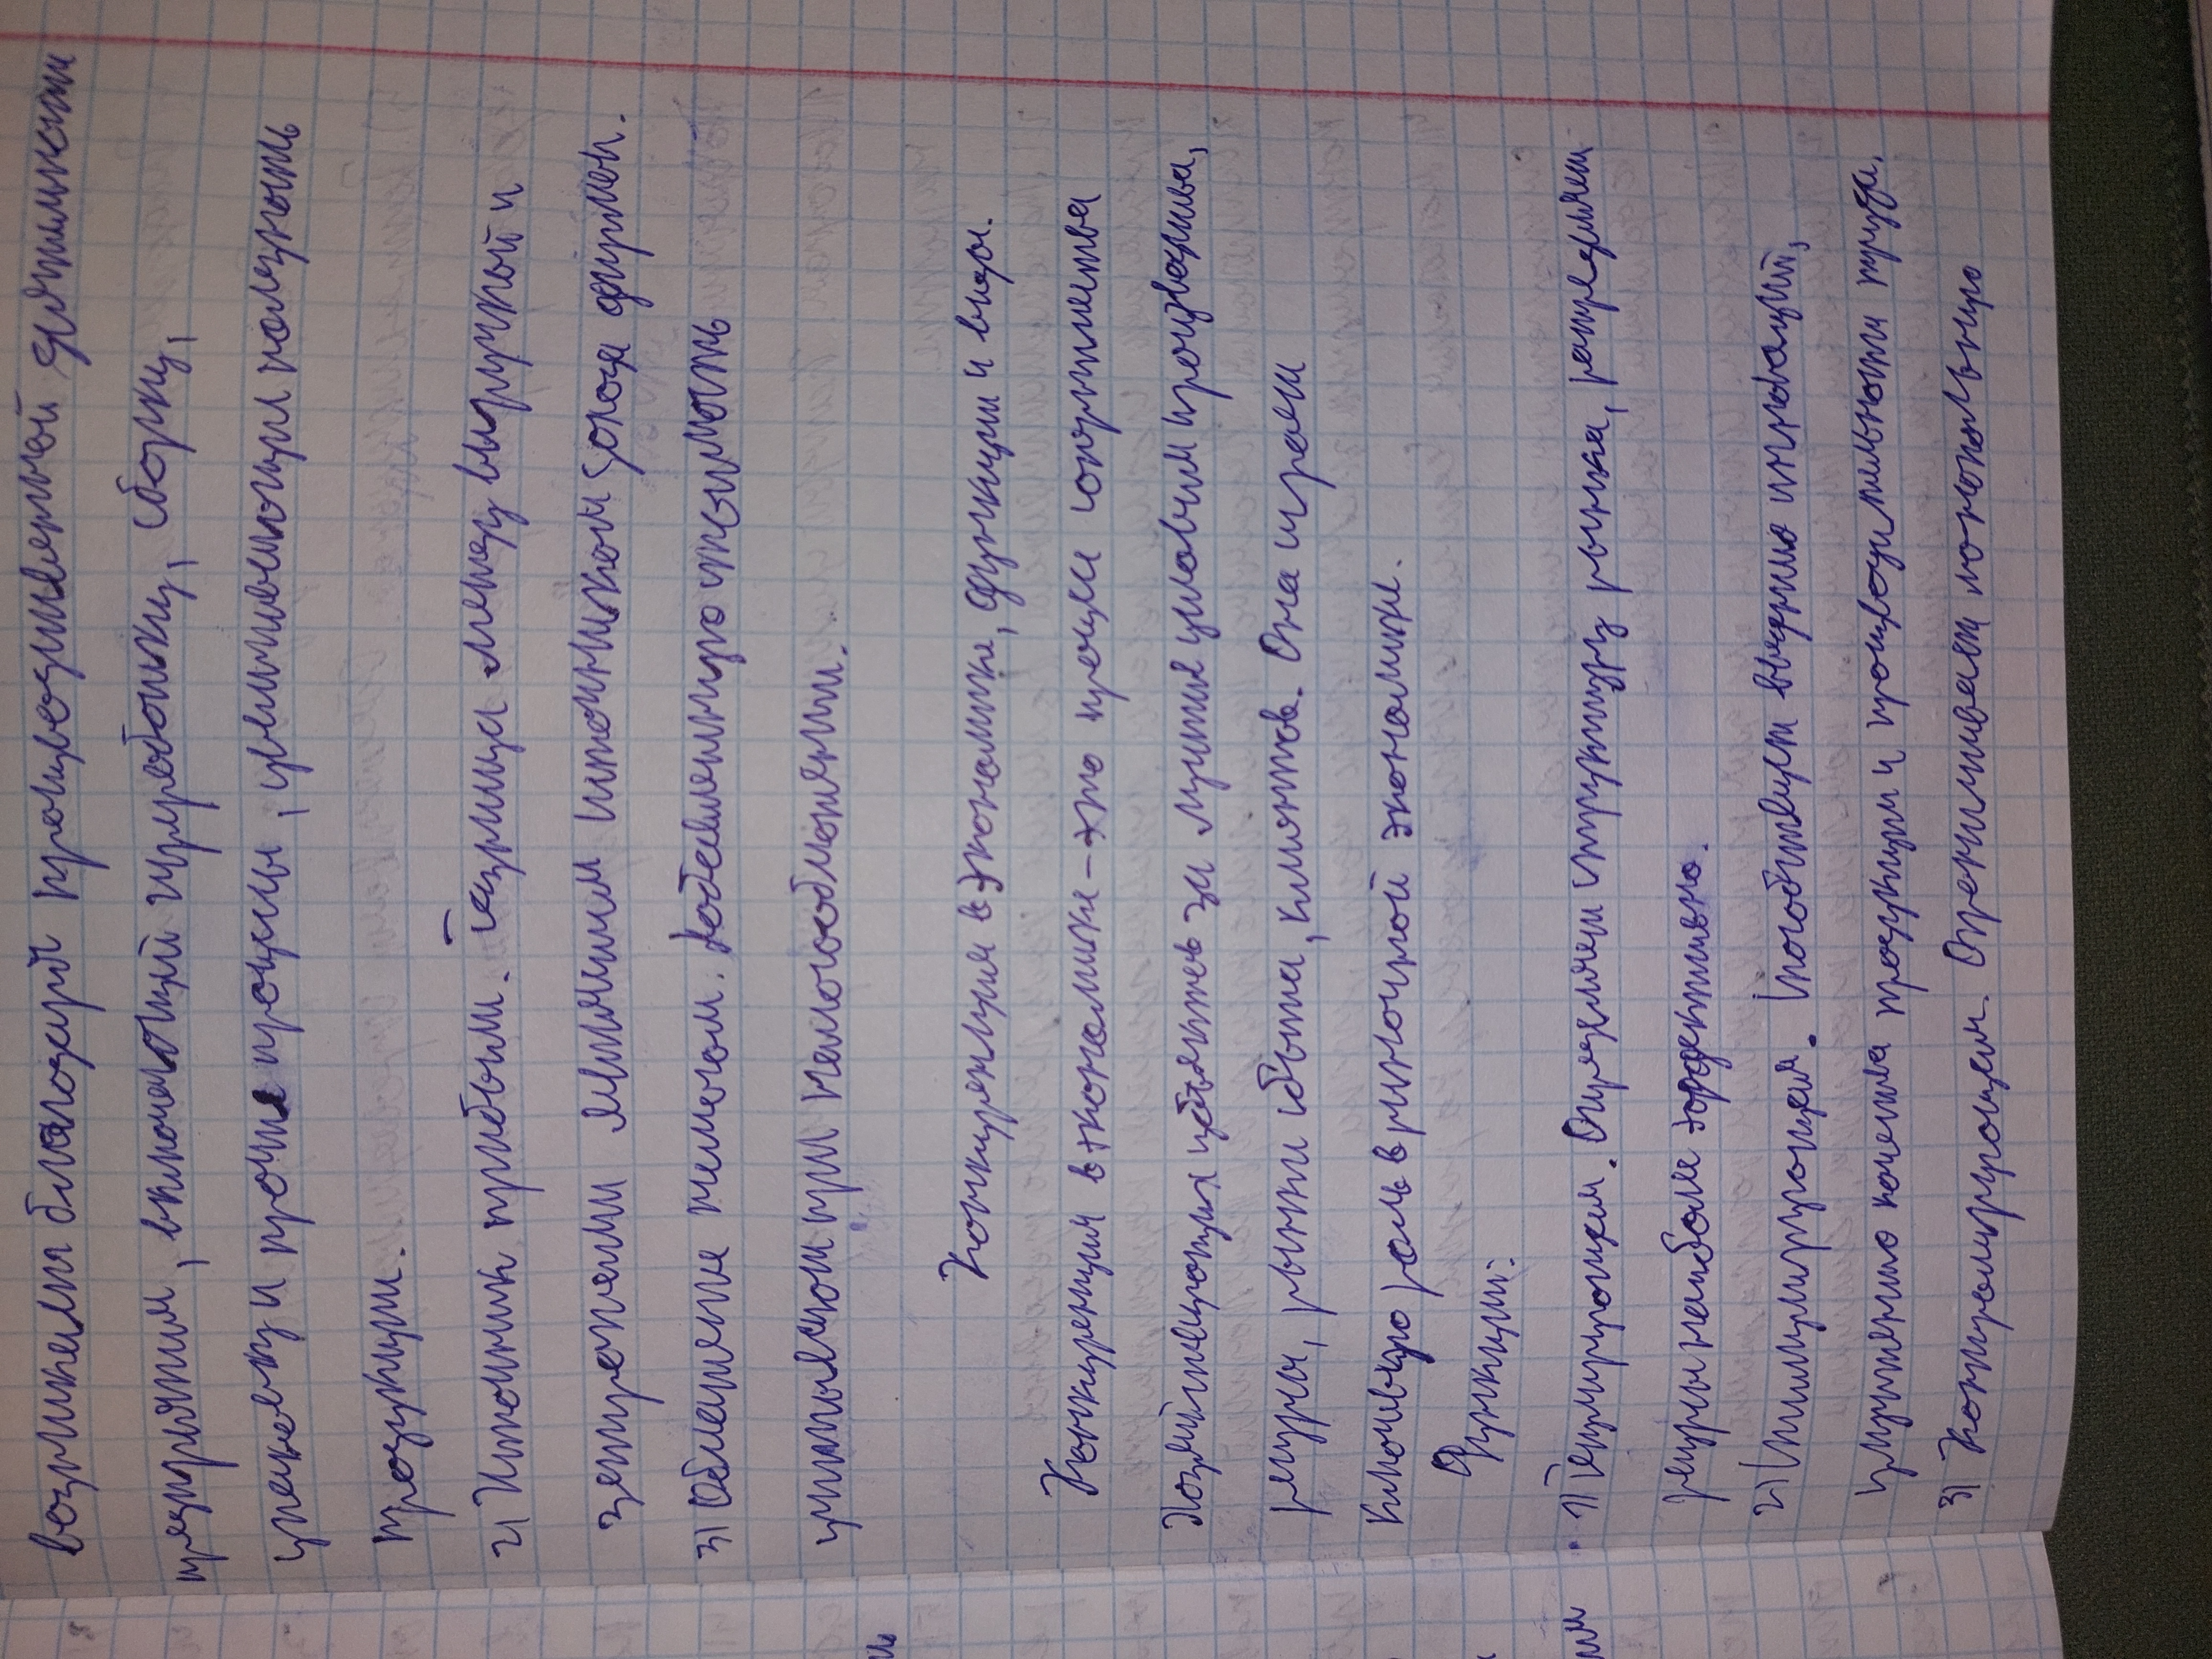 возникает благодаря производственной деятельности
предприятия, включающий переработку, сборку,
упаковку и прочие процессы, увеличивающих полезность
продукции.
2) Источник прибыли. Разница между выручкой и
затратами является источником дохода фирмы.
3) Обложение налогом. Добавленную стоимость
учитывают при налогообложении.
Конкуренция в экономике, функции и виды.
Конкуренция в экономике - это процесс соперничества
хозяйствующих субъектов за лучшие условия производства,
ресурсы, рынки сбыта, клиентов. Она играет
ключевую роль в рыночной экономике.
Функции:
1) Регулирующая. Определяет структуру рынка, распределяет
ресурсы наиболее эффективно.
2) Стимулирующая. Способствует внедрению инноваций,
улучшению качества продукции и производительности труда.
3) Контролирующая. Ограничивает монопольную